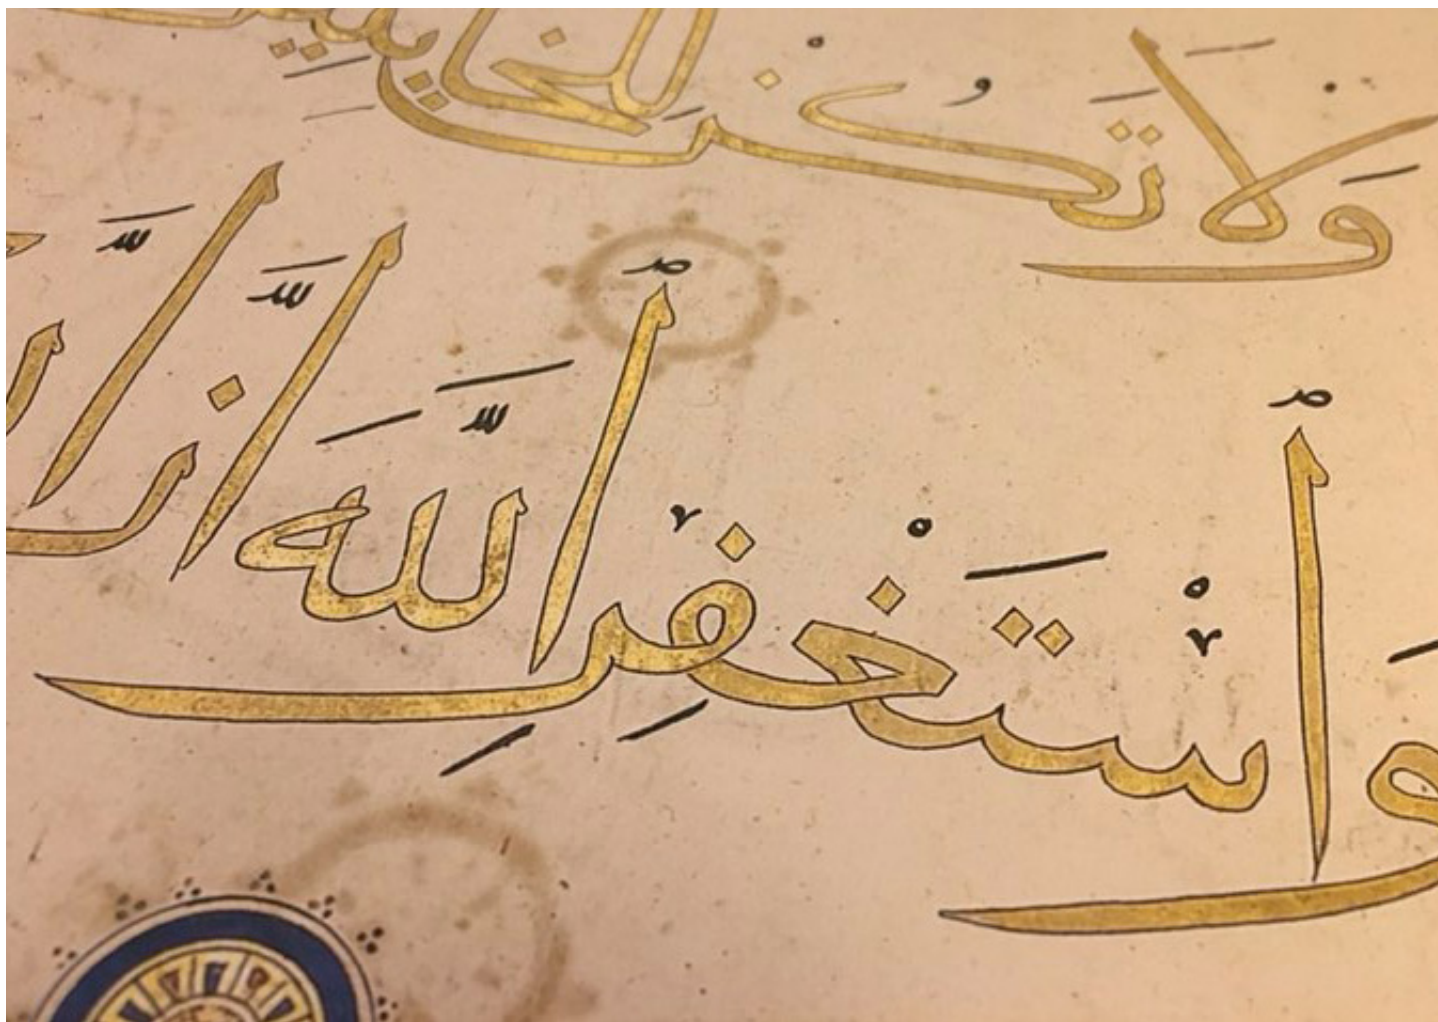 وَلَا تَكُن لِّلْخَائِنِينَ
وَٱسْتَغْفِرِ ٱللَّهَ إِنَّ ٱللَّهَ